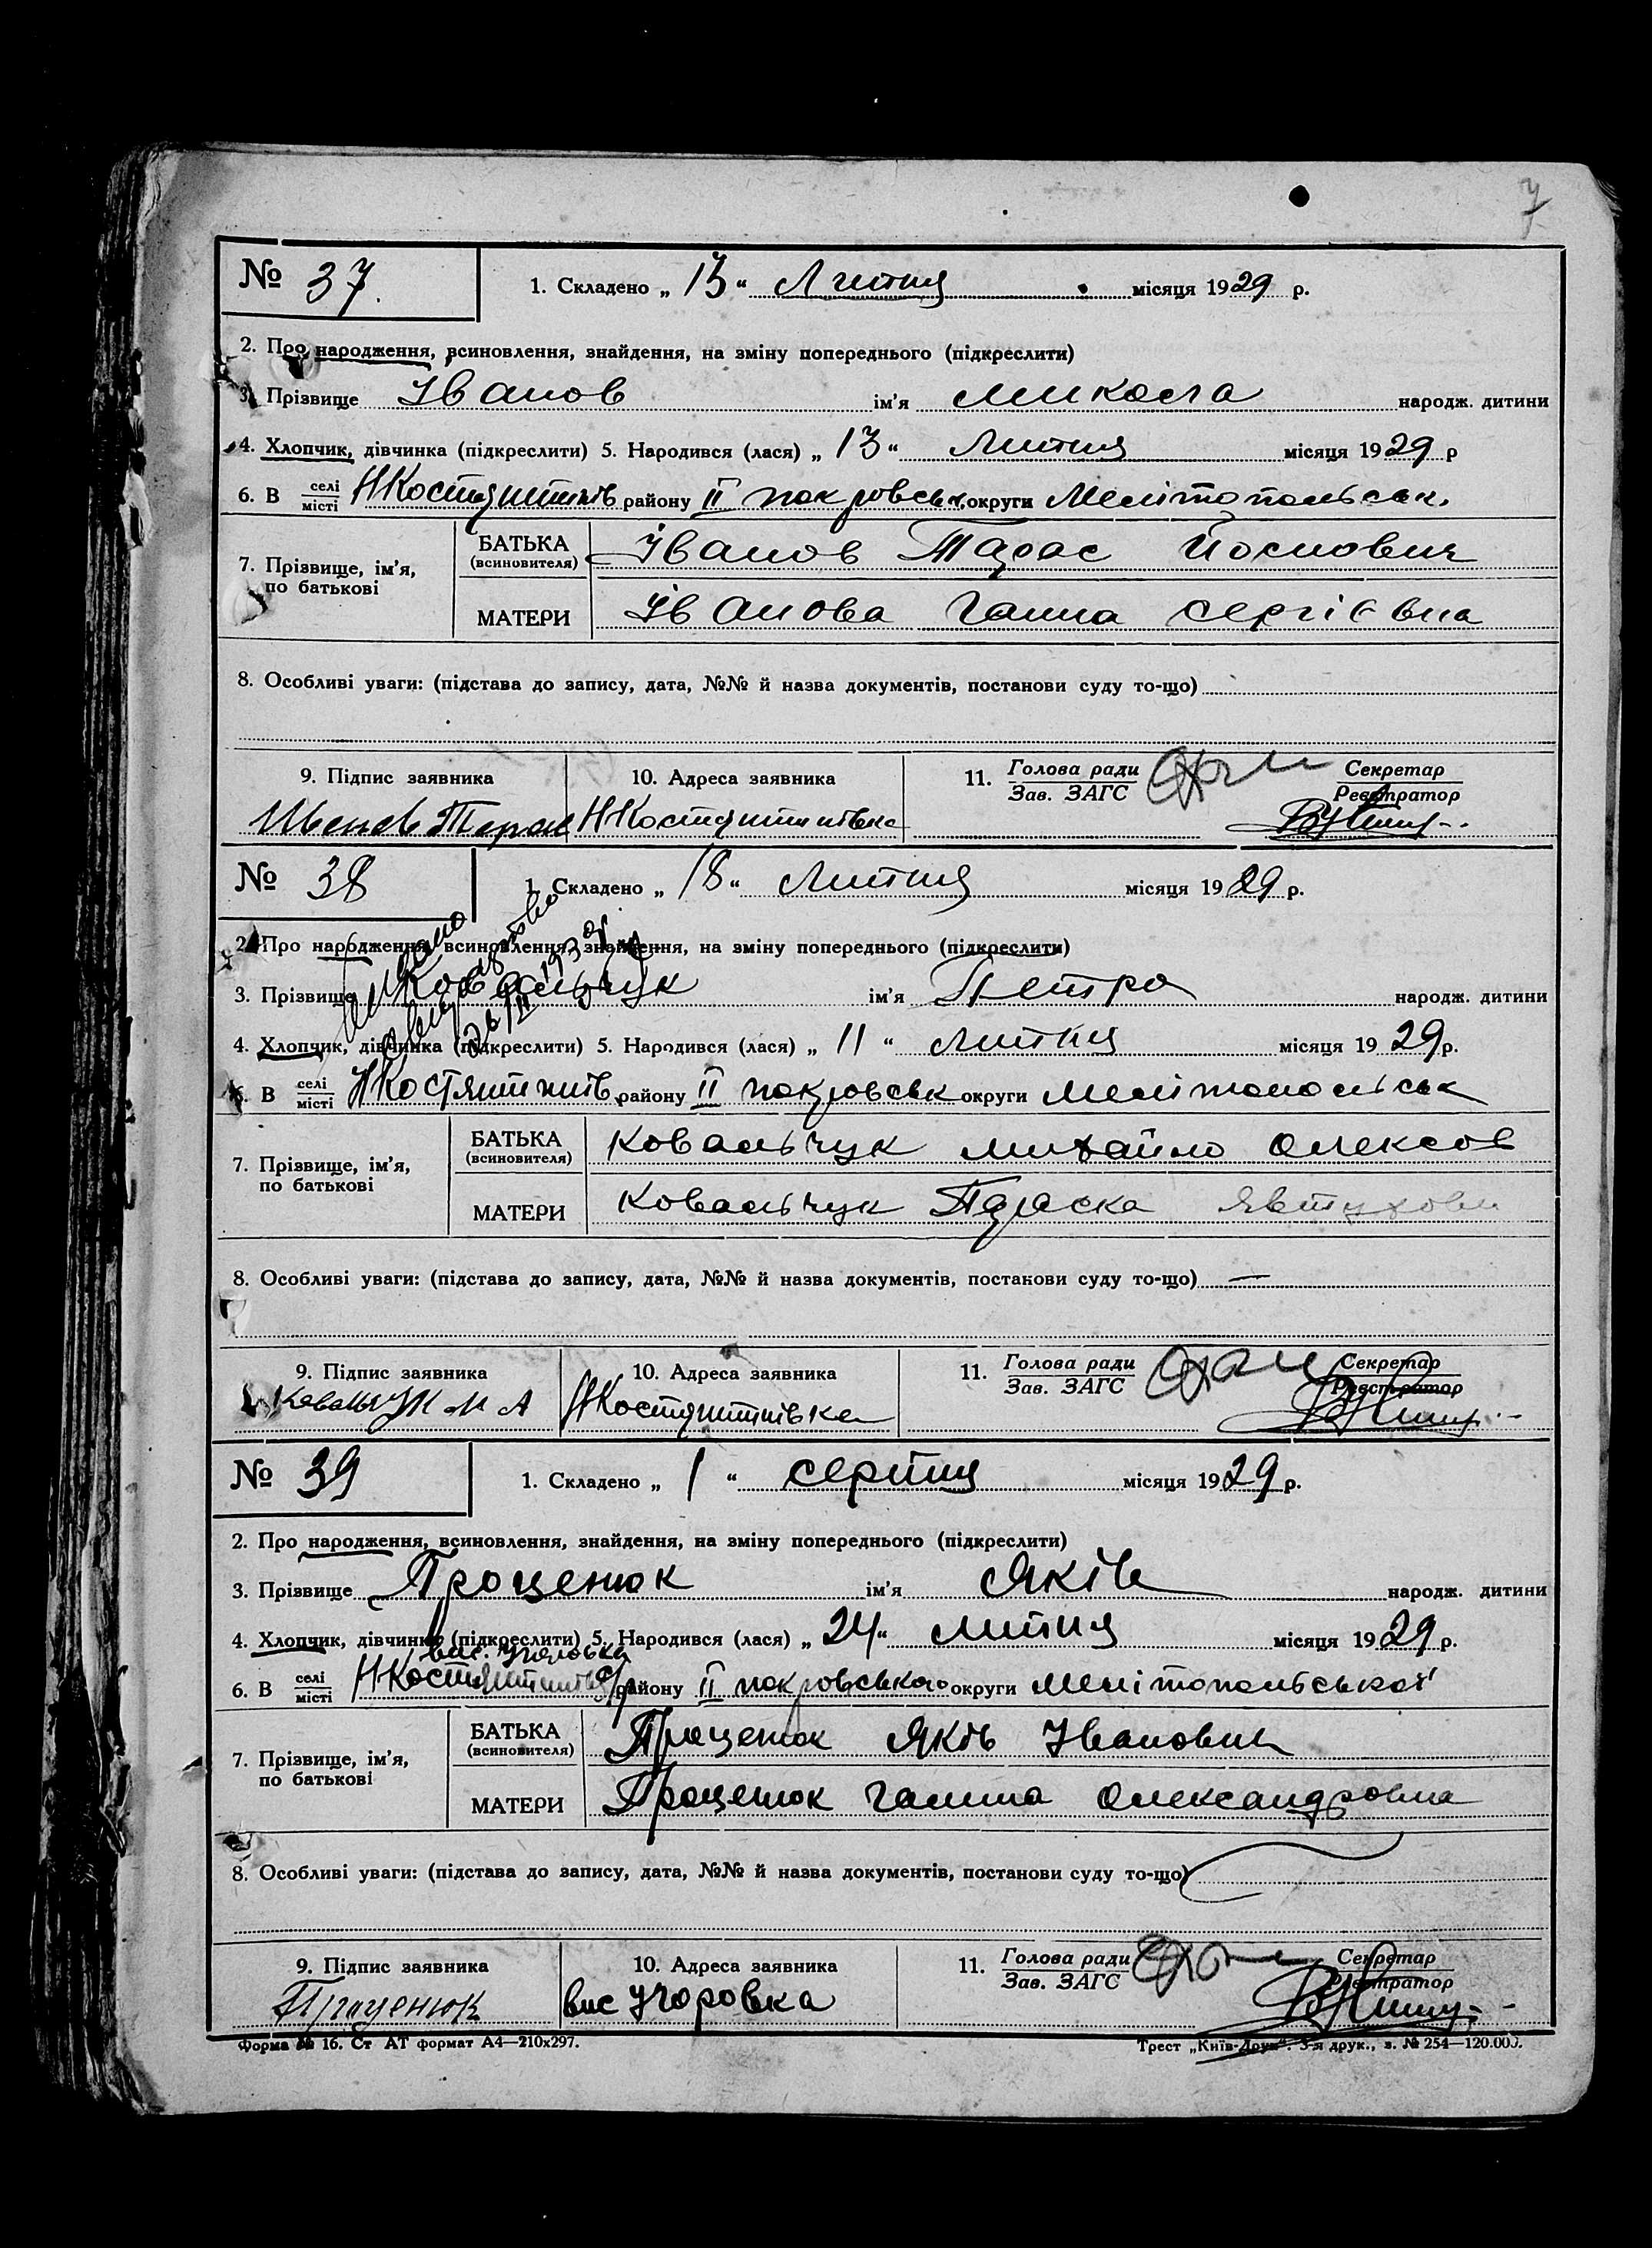 7
№ 37. 1. Складено „ 13 “ Липня місяця 1929 р.
2. Про народження, всиновлення, знайдення, на зміну попереднього (підкреслити)
3. Прізвище Іванов ім’я Микола народж. дитини
4. Хлопчик, дівчинка (підкреслити) 5. Народився (лася) „ 13 “ Липня місяця 1929 р
6. В селі місті НКостянтинів району II покровськ. округи Мелітопольськ.
БАТЬКА (всиновителя) Іванов Тарас Йосипович
7. Прізвище, ім’я, по батькові
МАТЕРИ Іванова Ганна Сергієвна
8. Особливі уваги: (підстава до запису, дата, №№ й назва документів, постанови суду то-що)
9. Підпис заявника 10. Адреса заявника 11. Голова ради Зав. ЗАГС Секретар Реєстратор
Иванов Тарас НКостянтинівка
№ 38 1. Складено „ 18 “ Липня місяця 1929 р.
2. Про народження, всиновлення, знайдення, на зміну попереднього (підкреслити)
3. Прізвище Ковальчук ім’я Петро народж. дитини
4. Хлопчик, дівчинка (підкреслити) 5. Народився (лася) „ 11 “ Липня місяця 1929 р.
6. В селі місті НКостянтинів. району II покровськ округи Мелітопольськ
БАТЬКА (всиновителя) Ковальчук Михайло Олексов
7. Прізвище, ім’я, по батькові
МАТЕРИ Ковальчук Параска Явтухови
8. Особливі уваги: (підстава до запису, дата, №№ й назва документів, постанови суду то-що) —
9. Підпис заявника 10. Адреса заявника 11. Голова ради Зав. ЗАГС Секретар Реєстратор
Ковальчук М А НКостянтинівка
№ 39 1. Складено „ 1 “ серпня місяця 1929 р.
2. Про народження, всиновлення, знайдення, на зміну попереднього (підкреслити)
3. Прізвище Проценюк ім’я Яків народж. дитини
4. Хлопчик, дівчинка (підкреслити) 5. Народився (лася) „ 24 “ липня місяця 1929 р.
вис.
6. В селі місті НКостянтинівс/р району II покровського округи Мелітопольської
БАТЬКА (всиновителя) Проценюк Яків Іванович
7. Прізвище, ім’я, по батькові
МАТЕРИ Проценюк Галина Олександровна
8. Особливі уваги: (підстава до запису, дата, №№ й назва документів, постанови суду то-що)
9. Підпис заявника 10. Адреса заявника 11. Голова ради Зав. ЗАГС Секретар Реєстратор
Проценюк вис
Форма № 16. Ст АТ формат А4—210х297. Трест „Київ-Друк“. 3-я друк., з. № 254—120.000.